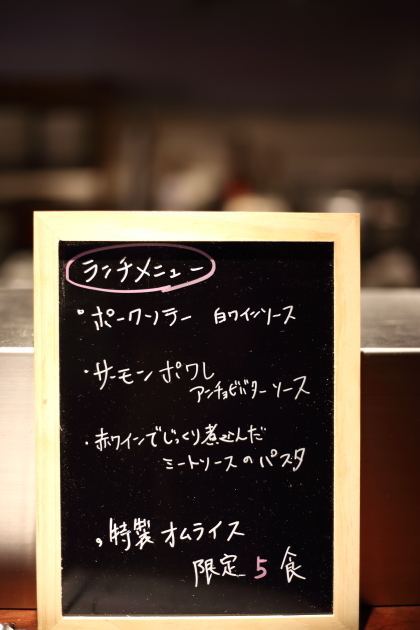 ランチメニュー
ポークソテー 白ワインソース
・サーモン ポワレ
アンチョビバターソース
・赤ワインでじっくり煮込んだ
ミートソースのパスタ
特製 オムライス
限定 5 食